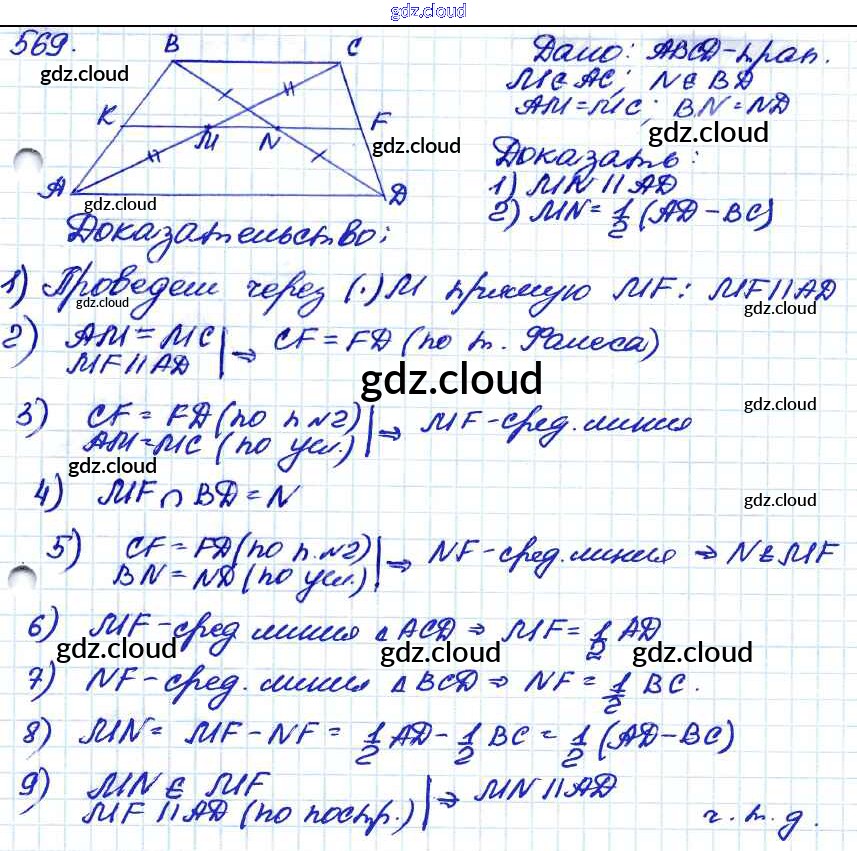 gdz.cloud
569.
B C
K M N F
A D
Дано: ABCD-трап.
M∈AC; N∈BD
AM=MC; BN=ND
Доказать:
1) MN || AD
2) MN = 1/2 (AD-BC)
Доказательство:
1) Проведем через (·)M прямую MF: MF||AD
2) AM=MC
MF||AD | ⇒ CF=FD (по т. Фалеса)
3) CF=FD (по п.№2)
AM=MC (по усл.) | ⇒ MF-сред.линия
4) MF∩BD=N
5) CF=FD (по п.№2)
BN=ND (по усл.) | ⇒ NF-сред.линия ⇒ N∈MF
6) MF-сред линия ΔACD ⇒ MF=1/2 AD
7) NF-сред. линия ΔBCD ⇒ NF=1/2 BC.
8) MN= MF-NF= 1/2 AD-1/2 BC= 1/2 (AD-BC)
9) MN∈MF
MF||AD (по постр.) | ⇒ MN||AD
ч.т.д.
gdz.cloud
gdz.cloud
gdz.cloud
gdz.cloud
gdz.cloud
gdz.cloud
gdz.cloud
gdz.cloud
gdz.cloud
gdz.cloud
gdz.cloud
gdz.cloud
gdz.cloud
gdz.cloud